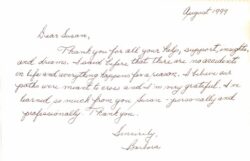 August 1999
Dear Susan,
Thank you for all your help, support, insights,
and dreams. I said before that there are no accidents
in life and everything happens for a reason. I believe our
paths were meant to cross and I'm very grateful. I've
learned so much from you Susan - personally and
professionally. Thank you.
Sincerely,
Barbara